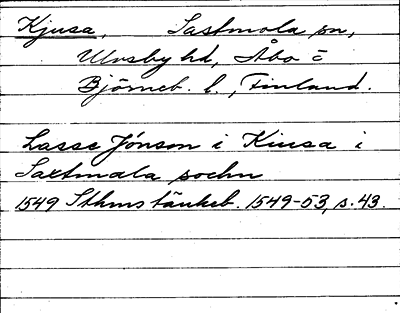 Kjusa, Sastmola sn,
Ulvsby hd, Åbo o
Björneb. l., Finland.
Lasse Jónson i Kiusa i
Sastmala sochn
1549 Sthms tänkeb. 1549-53, s. 43.